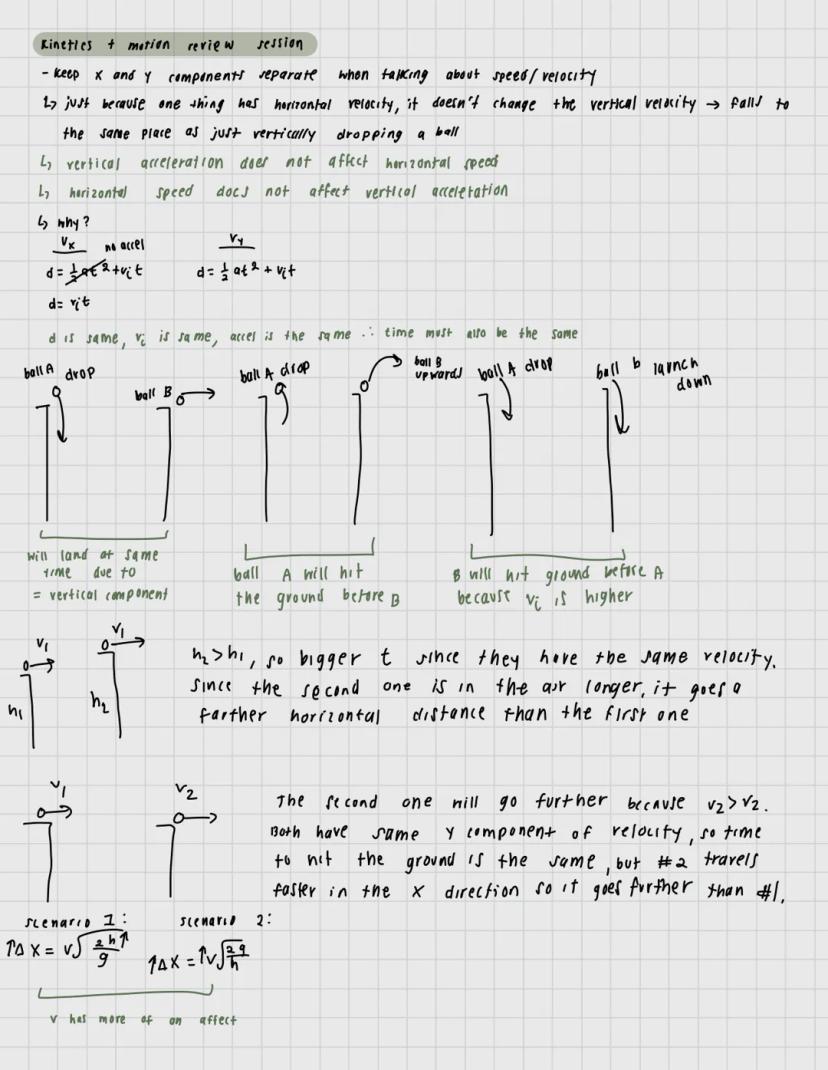 Kinetics + motion review session
- Keep x and y components separate when talking about speed/velocity
↳ just because one thing has horizontal velocity, it doesn't change the vertical velocity → falls to
the same place as just vertically dropping a ball
↳ vertical acceleration does not affect horizontal speed
↳ horizontal speed does not affect vertical acceleration
↳ why?
Vx no accel Vy
d = ½at² + vit d = ½at² + vit
d = vit
d is same, vi is same, accel is the same ∴ time must also be the same
ball A drop
ball B
ball A drop
ball B
upwards
ball A drop
ball b launch
down
will land at same
time due to
= vertical component
ball A will hit
the ground before B
B will hit ground before A
because vi is higher
v1
h1
v1
h2
h2 > h1, so bigger t since they have the same velocity.
Since the second one is in the air longer, it goes a
farther horizontal distance than the first one
v1
v2
The second one will go further because v2 > v2.
Both have same y component of velocity, so time
to hit the ground is the same, but #2 travels
faster in the x direction so it goes further than #1.
scenario 1: scenario 2:
↑Δx = v√(2h↑/g) ↑Δx = ↑v√(2g/h)
v has more of an affect